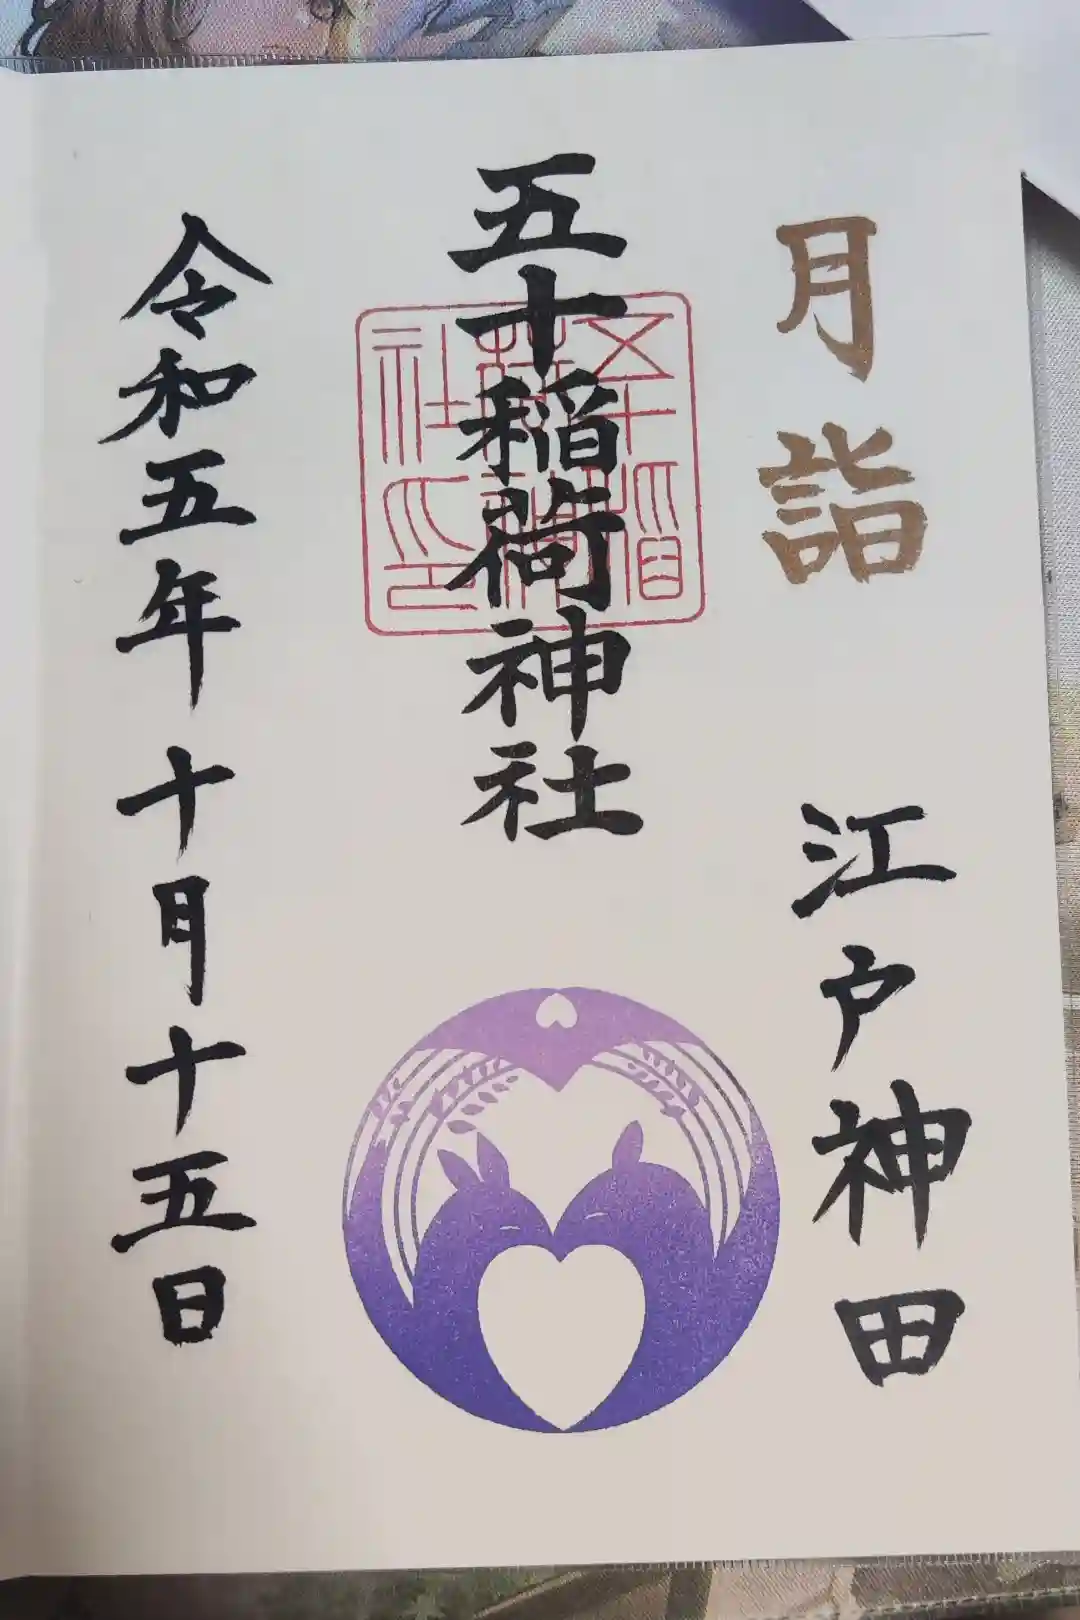 月詣
江戸神田
五十稲荷神社
五十稲荷神社印
令和五年十月十五日